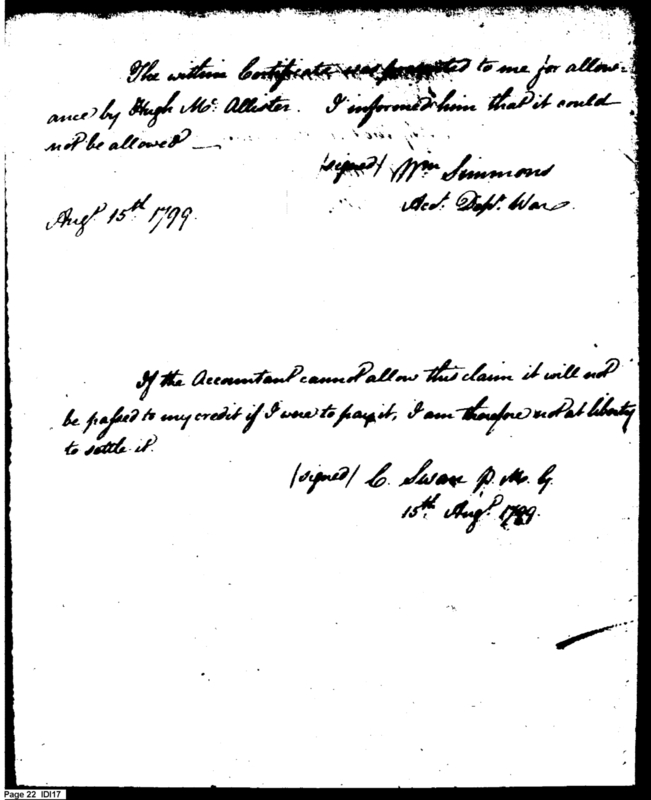 The within Certificate was presented to me for allow-
ance by Hugh Mc. Allister. I informed him that it could
not be allowed —
(signed) Wm Simmons
Acct. Dept. War
Augt. 15th 1799.
If the Accountant cannot allow this claim it will not
be passed to my credit if I were to pay it, I am therefore not at liberty
to settle it.
(signed) C. Swan P. M. G.
15th Augt. 1799.
Page 22 IDI17